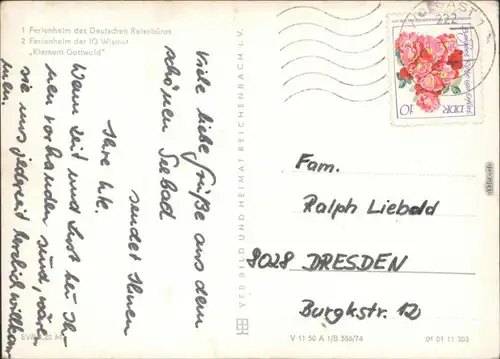 1 Ferienheim des Deutschen Reisebüros
2 Ferienheim der IG Wismut
„Klement Gottwald"
Viele liebe Grüße aus dem
schönen Seebad
sendet Ihnen
Ihre
Wenn Zeit und Lust bei Ih-
nen vorhanden sind, wären
sie uns jederzeit herzlich willkom-
men.
VEB BILD UND HEIMAT REICHENBACH I. V.
222
10
DDR
Fam.
Ralph Liebold
8028 DRESDEN
Burgkstr. 12
V 11 50 A 1/B 556/74
01 01 11 303